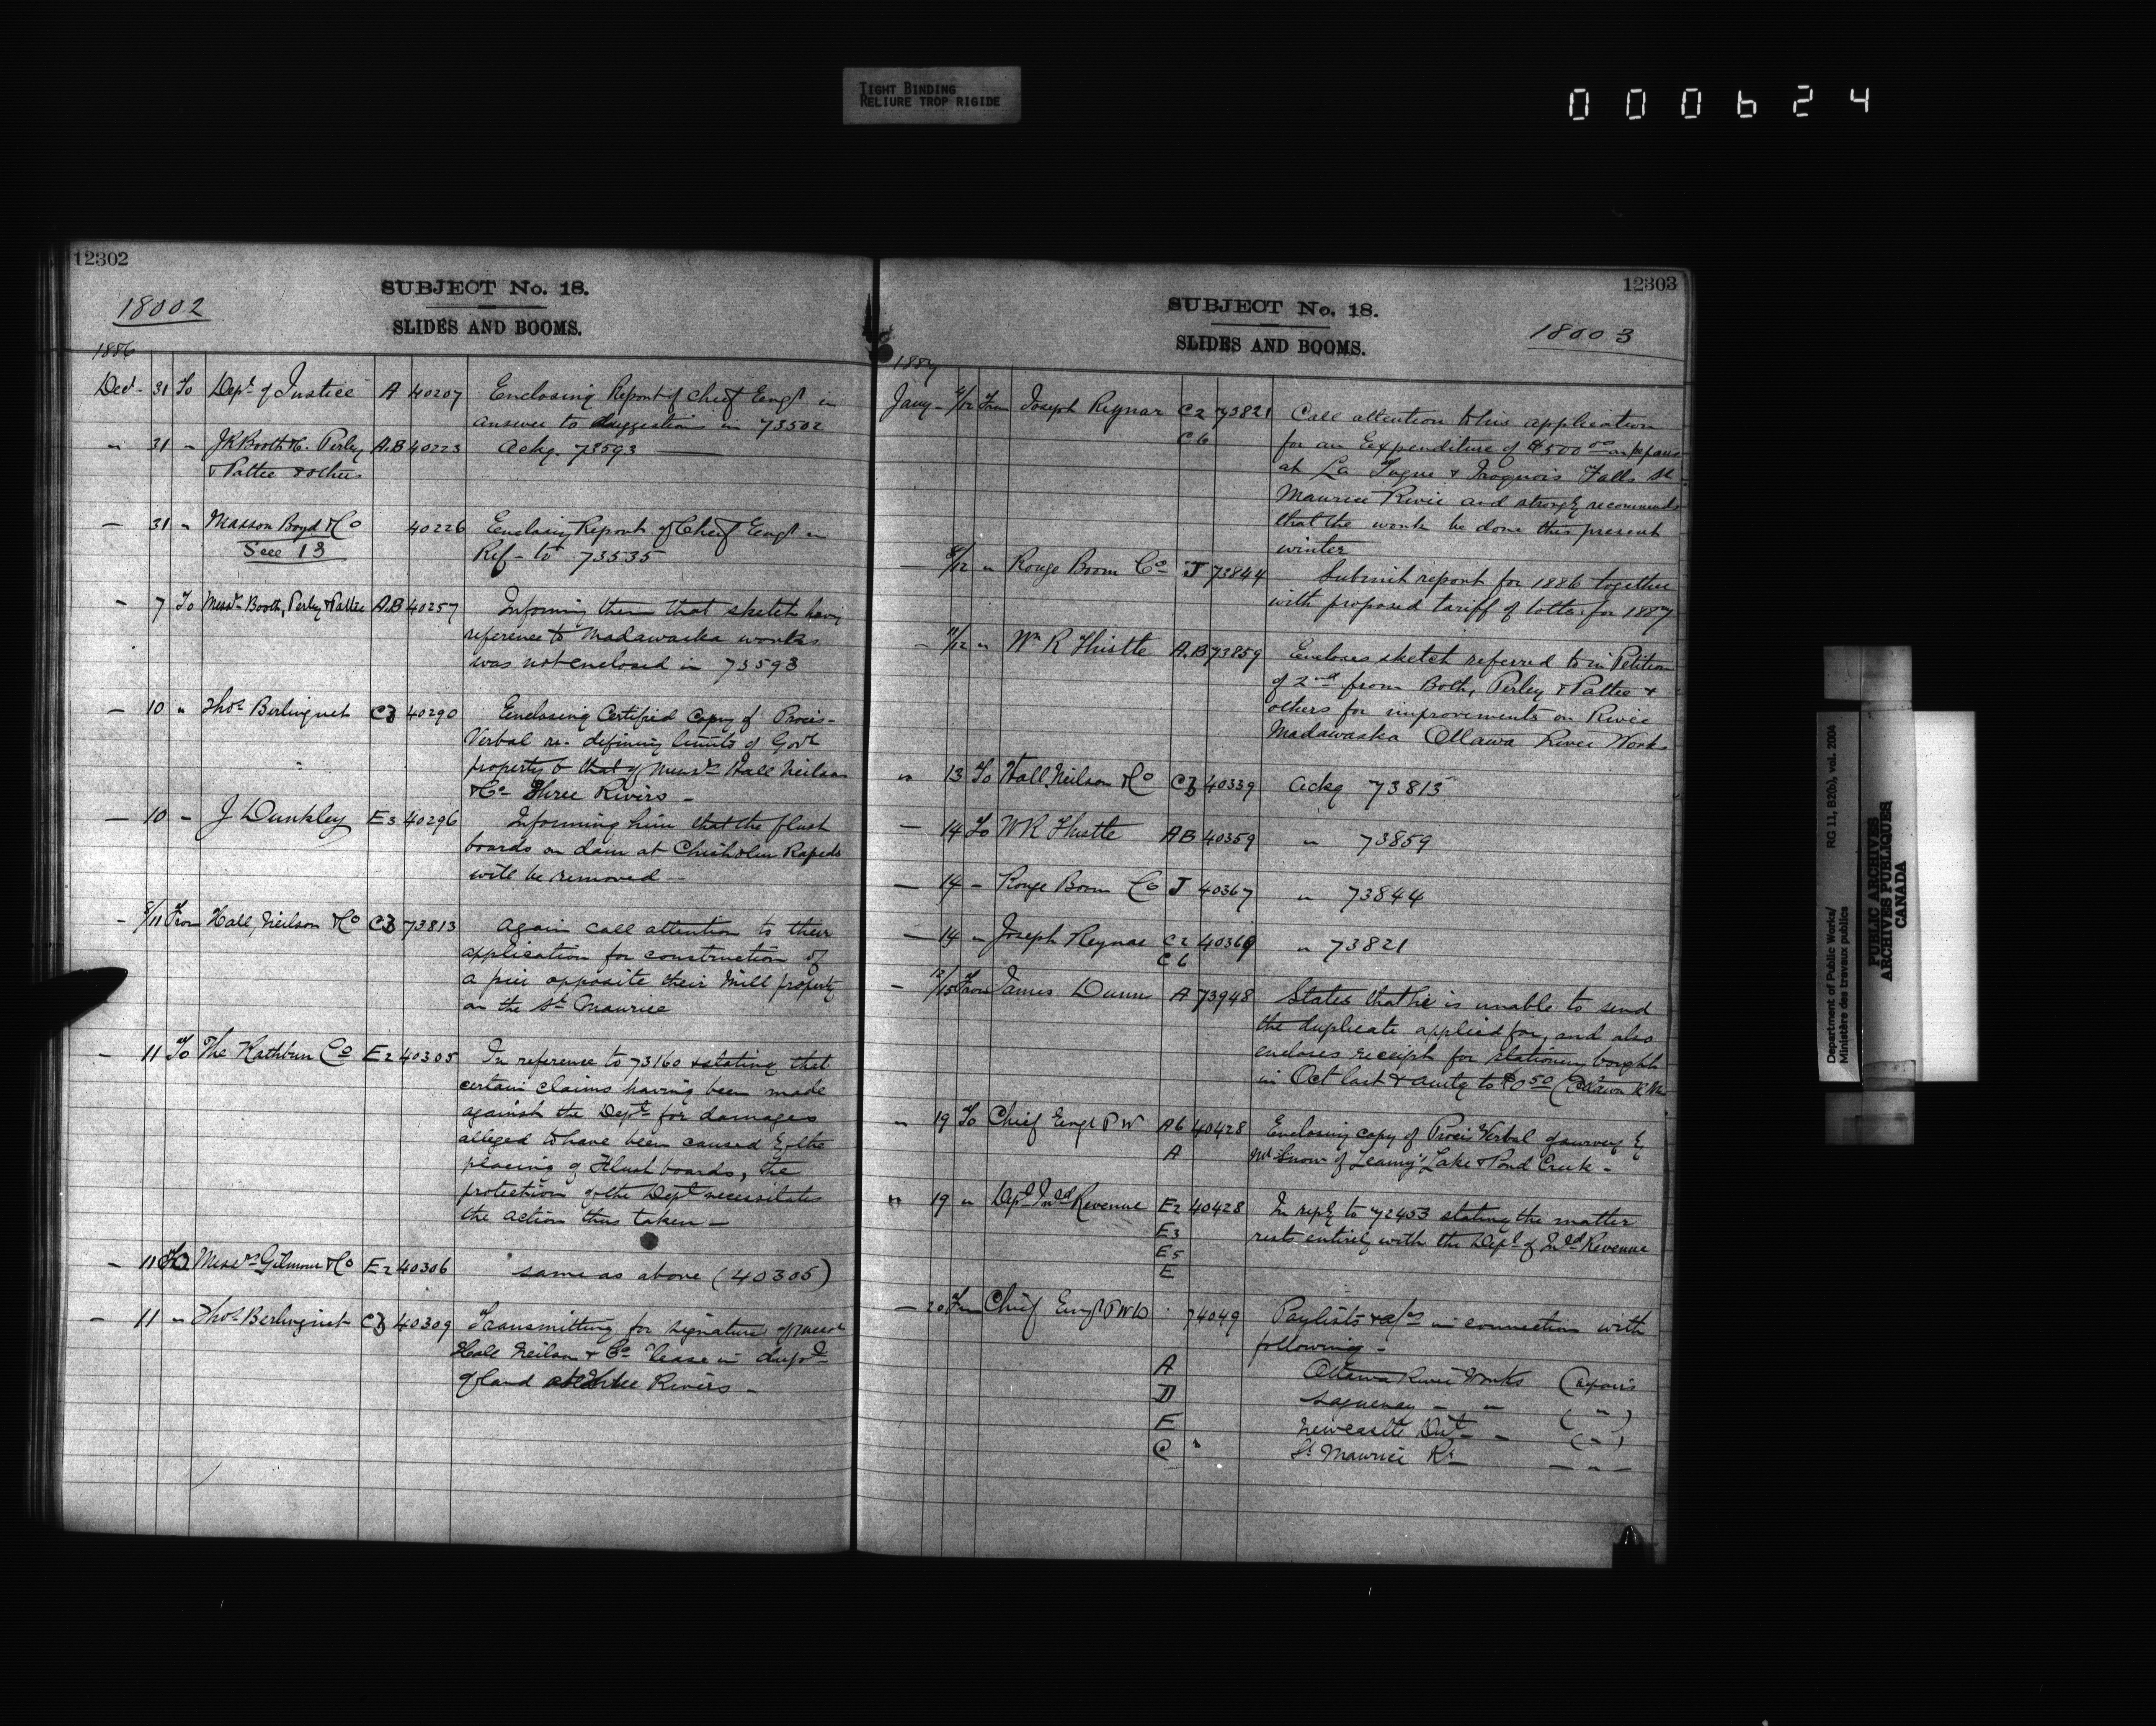 TIGHT BINDING
RELIURE TROP RIGIDE
000624
12302
SUBJECT No. 18.
18002
SLIDES AND BOOMS.
1886
Decr - 31 To Dept of Justice A 40207 Enclosing Report of Chief Engr in
answer to suggestions in 73502
" 31 " JR Booth H. Perley A.B 40223 Ackg. 73593
& Pattee & others
— 31 " Masson Boyd & Co 40226 Enclosing Report of Chief Engr in
See 13 Ref- to 73535
- 7 To Messrs Booth, Perley & Pattee A.B 40257 Informing them that sketch having
reference to Madawaska works
was not enclosed in 73593
- 10 " Thos Berlinguet C3 40290 Enclosing Certified Copy of Procis-
Verbal re- defining limits of Govt
property & that of Messrs Hall Neilson
& Co Three Rivers -
— 10 - J. Dunkley E3 40296 Informing him that the flush
boards on dam at Chisholm Rapids
will be removed -
- 8/11 From Hall, Neilson & Co C3 73813 Again call attention to their
application for construction of
a pier opposite their Mill property
on the St Maurice
- 11 To The Rathbun Co E2 40305 In reference to 73160 & stating that
certain claims having been made
against the Dept for damages
alleged to have been caused by the
placing of Flush boards, the
protection of the Dept necessitates
the action thus taken -
- 11 To Messrs Gilmour & Co E2 40306 same as above (40305)
- 11 " Thos Berlinguet C3 40309 Transmitting for signature of Messrs
Hall Neilson & Co lease in dupt
of land at Three Rivers -
12303
SUBJECT No. 18.
18003
SLIDES AND BOOMS.
1887
Jany - /12 From Joseph Reynar C2 73821 Call attention to his application
C6 for an Expenditure of $500 00 on repairs
at La Tuque & Iroquois Falls St
Maurice River and strongly recommends
that the work be done this present
winter
8/12 " Rouge Boom Co J 73844 Submit report for 1886 together
with proposed tariff of tolls for 1887
- 11/12 " Wm R Thistle A.B 73859 Encloses sketch referred to in Petition
of 2nd from Both, Perley & Pattee &
others for improvements on River
Madawaska Ottawa River Works
" 13 To Hall Neilson & Co C3 40339 Ackg 73813
— 14 To WR Thistle AB 40359 " 73859
— 14 - Rouge Boom Co J 40367 " 73844
— 14 " Joseph Reynar C2 40369 " 73821
C6
- 12/15 From James Dunn A 73948 States that he is unable to send
the duplicate applied for, and also
encloses receipt for stationery bought
in Oct last & amtg to $0 50 (Ottawa R Wks
" 19 To Chief Engr PW A6 40428 Enclosing copy of Procis Verbal of survey by
A Mr Snow of Leamy's Lake & Pond Creek -
" 19 " Dept Inld Revenue E2 40428 In reply to 72453 stating the matter
E3 rests entirely with the Dept of Inld Revenue
E5
E
— 20 From Chief Engr PWD 74049 Paylists & a/cs in connection with
following -
A Ottawa River Works (repairs
D Saguenay - " ( " )
E Newcastle Dist - ( " )
C " St Maurice Rr — " —
Department of Public Works/
Ministère des travaux publics
RG 11, B2(b), vol. 2004
PUBLIC ARCHIVES
ARCHIVES PUBLIQUES
CANADA